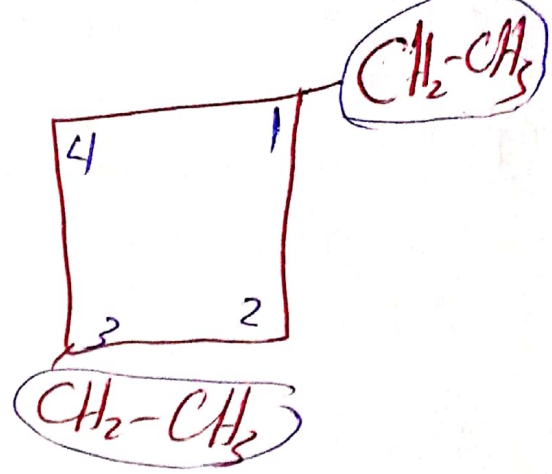 CH₂-CH₃
4 1
3 2
CH₂-CH₃